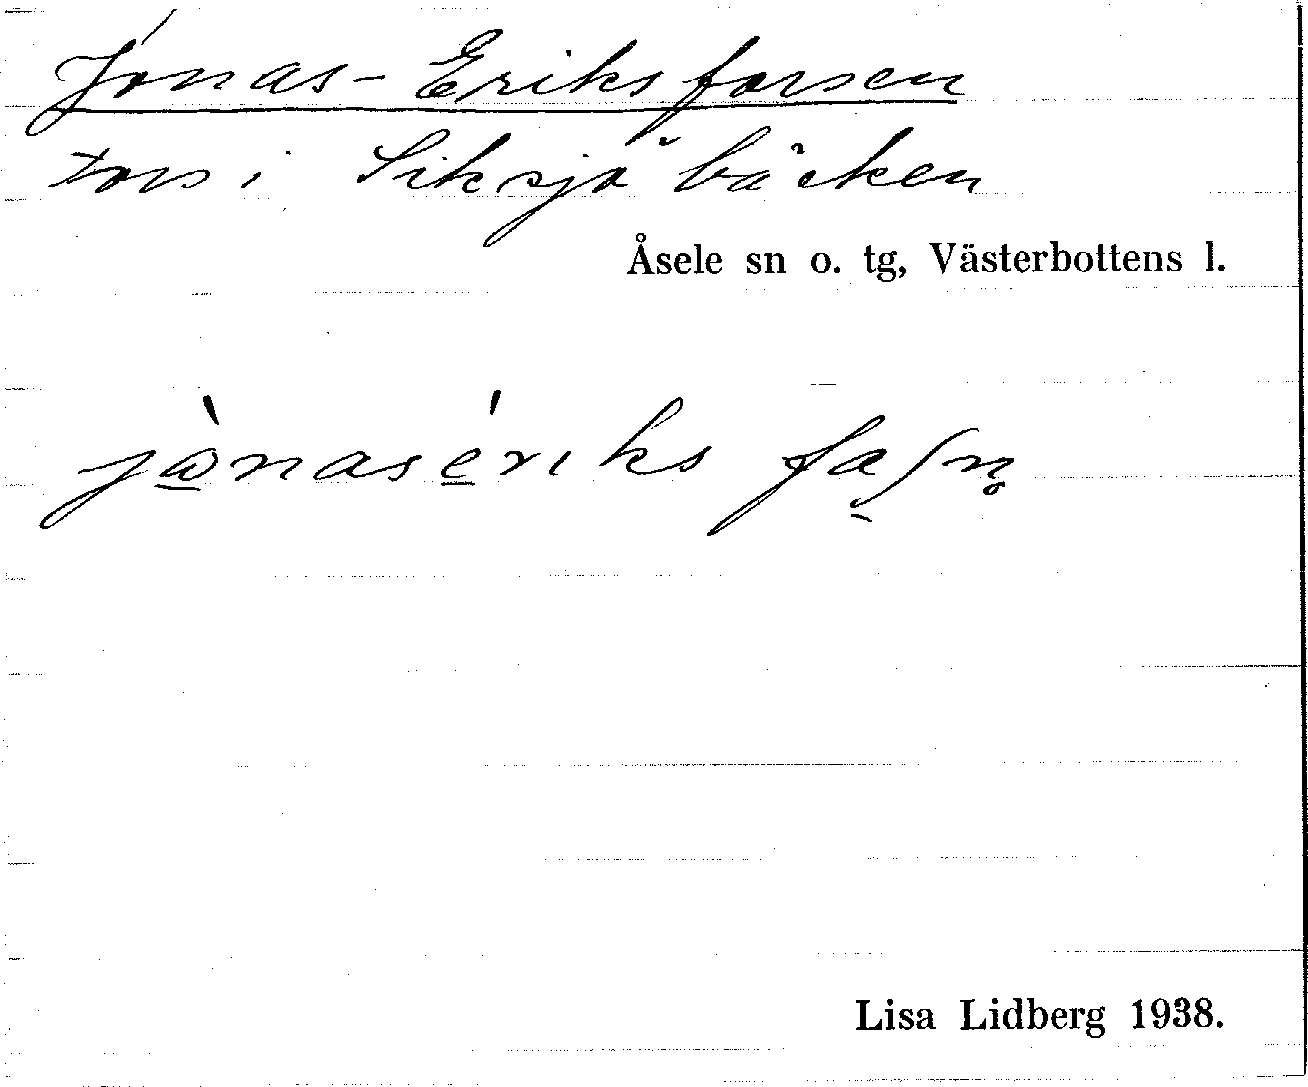 Jonas-Eriksforsen
Fors i Siksjöbäcken
Åsele sn o. tg, Västerbottens l.
jò̱nasé̱riks fa̱ʃn̥
Lisa Lidberg 1938.